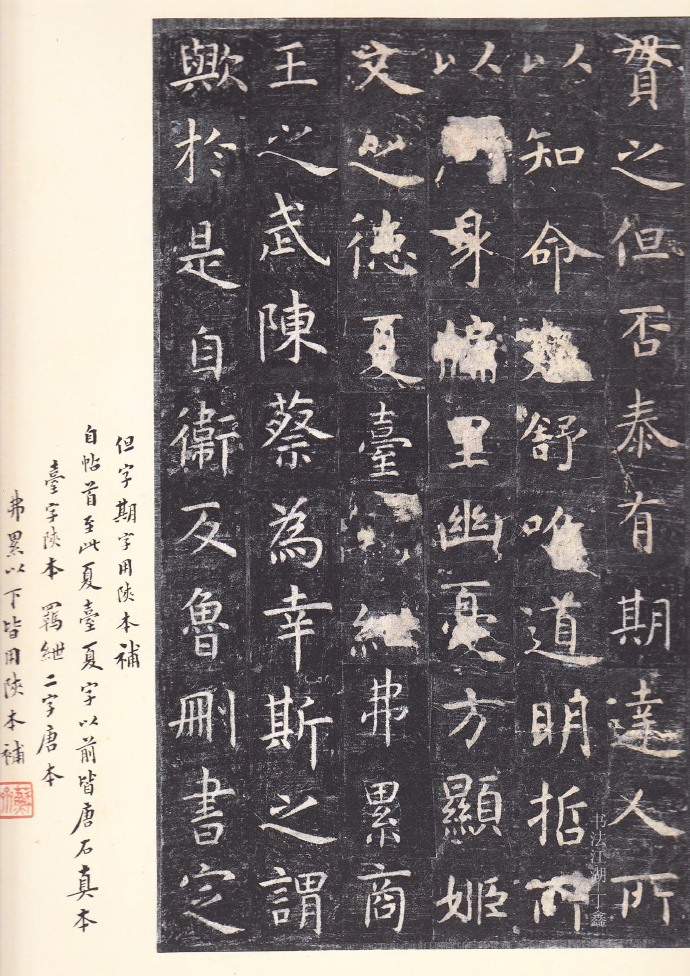 貫之但否泰有期達人所
以知命舒唯道明哲所
以周身牖里幽憂方顯姬
文之德夏臺紲弗累商
王之武陳蔡為幸斯之謂
歟於是自衛反魯刪書定
但字期字用陝本補
自帖首至此夏臺夏字以前皆唐石真本
臺字陝本羈紲二字唐本
弗累以下皆用陝本補
书法江湖 丁鑫